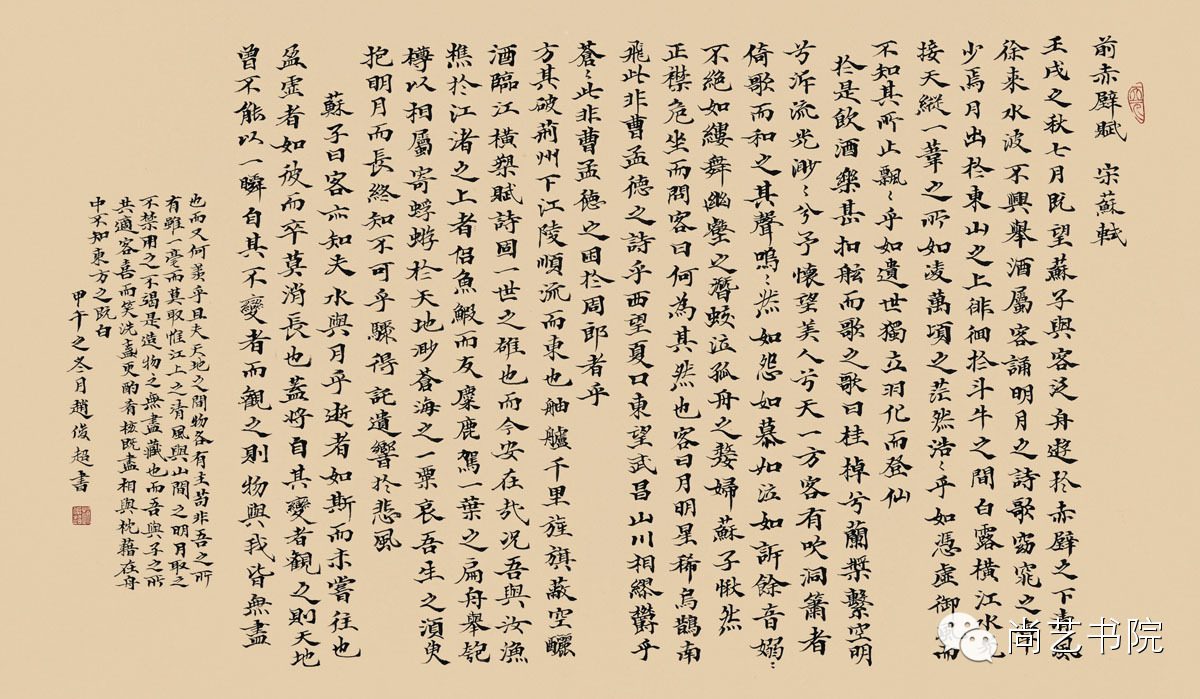 前赤壁賦 宋蘇軾
壬戌之秋七月既望蘇子與客泛舟遊於赤壁之下清風
徐來水波不興舉酒屬客誦明月之詩歌窈窕之
少焉月出於東山之上徘徊於斗牛之間白露橫江水
接天縱一葦之所如凌萬頃之茫然浩〻乎如憑虛御而
不知其所止飄〻乎如遺世獨立羽化而登仙
於是飲酒樂甚扣舷而歌之歌曰桂棹兮蘭槳擊空明
兮泝流光渺〻兮予懷望美人兮天一方客有吹洞簫者
倚歌而和之其聲嗚〻然如怨如慕如泣如訴餘音嫋〻
不絕如縷舞幽壑之潛蛟泣孤舟之嫠婦蘇子愀然
正襟危坐而問客曰何為其然也客曰月明星稀烏鵲南
飛此非曹孟德之詩乎西望夏口東望武昌山川相繆鬱乎
蒼〻此非曹孟德之困於周郎者乎
方其破荊州下江陵順流而東也舳艫千里旌旗蔽空釃
酒臨江橫槊賦詩固一世之雄也而今安在哉況吾與汝漁
樵於江渚之上者侶魚鰕而友麋鹿駕一葉之扁舟舉匏
樽以相屬寄蜉蝣於天地渺蒼海之一粟哀吾生之須臾
抱明月而長終知不可乎驟得託遺響於悲風
蘇子曰客亦知夫水與月乎逝者如斯而未嘗往也
盈虛者如彼而卒莫消長也蓋將自其變者而觀之則天地
曾不能以一瞬自其不變者而觀之則物與我皆無盡
也而又何羨乎且夫天地之間物各有主苟非吾之所
有雖一毫而莫取惟江上之清風與山間之明月取之
不禁用之不竭是造物之無盡藏也而吾與子之所
共適客喜而笑洗盞更酌肴核既盡相與枕藉在舟
中不知東方之既白
甲午之冬月趙俊超書
尚艺书院